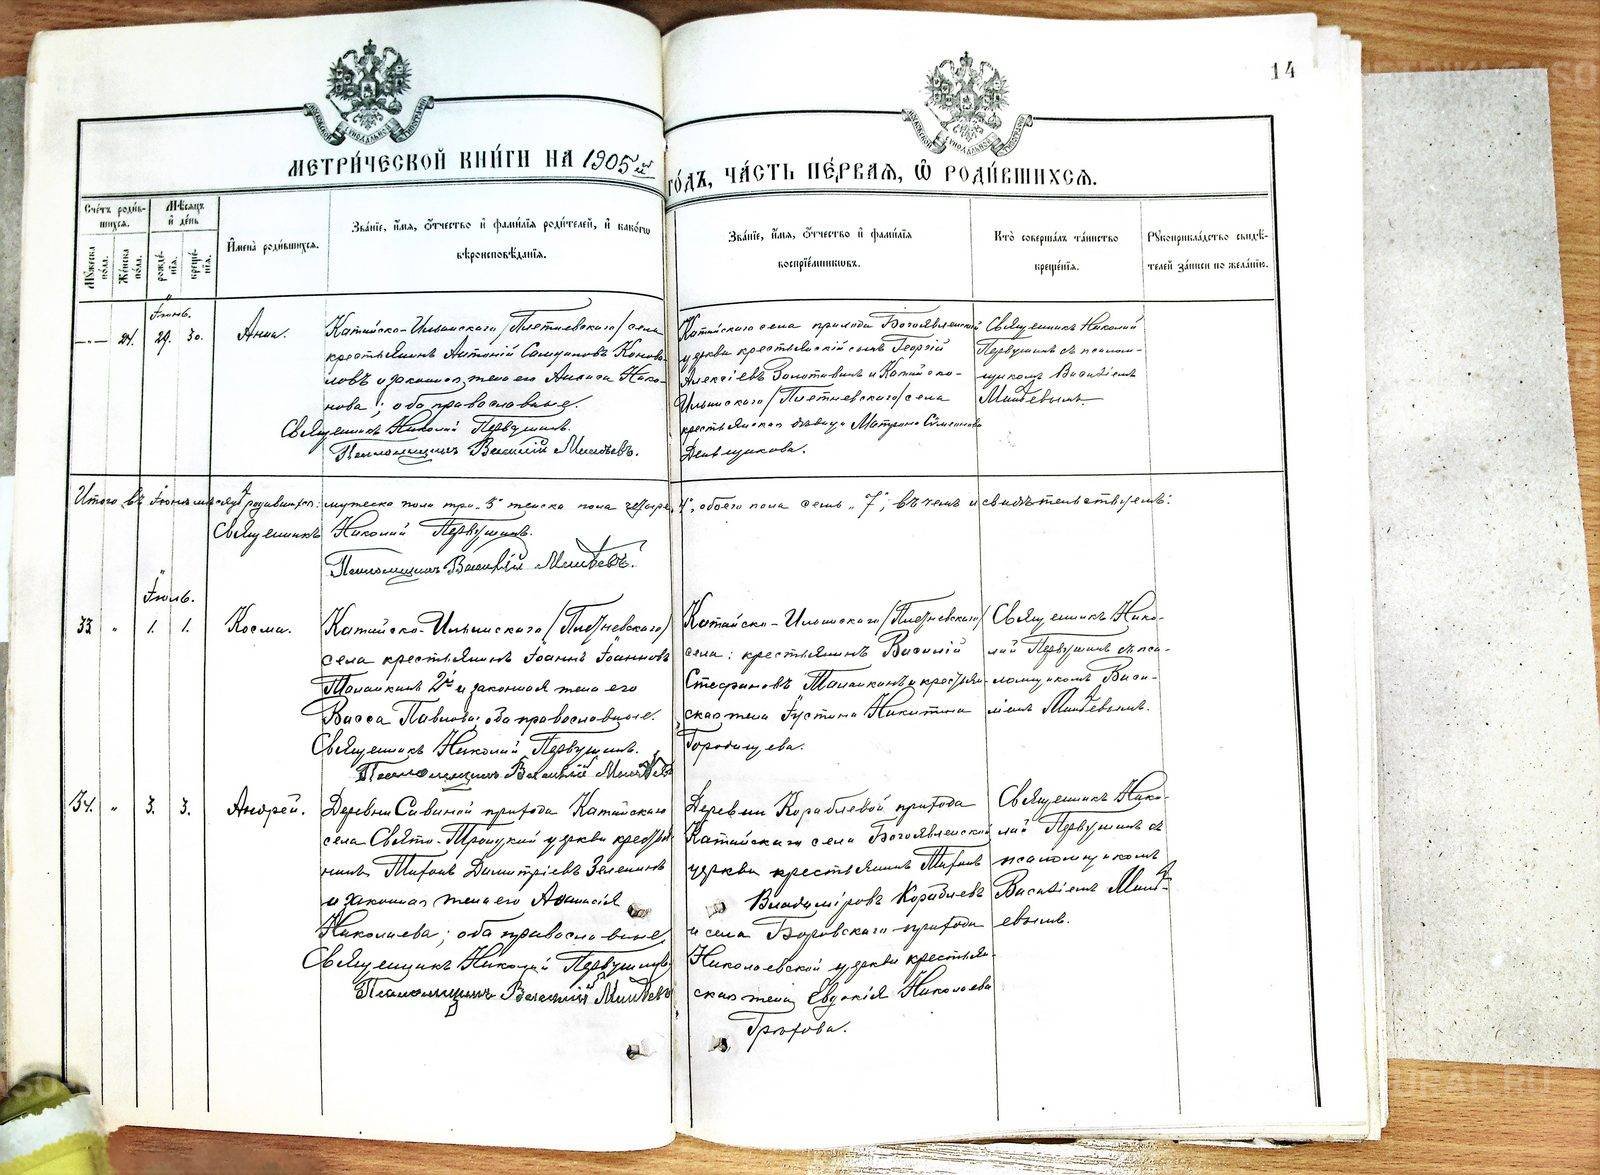 14
МЕТРИ́ЧЕСКОЙ КНИ́ГИ НА 1905й
ГО́ДЪ, ЧА́СТЬ ПЕ́РВАЯ, Ѽ РОДИ́ВШИХСЯ.
Сче́тъ роди́в-
шихся.
Мѣ́сяцъ
и҆ де́нь
Мꙋ́жеска
пола̀.
Же́нска
пола̀.
рожде́-
нїѧ.
креще́-
нїѧ.
И҆мена̀ роди́вшихся.
Зва́нїе, и҆́мя, ѻ҆́тчество и҆ фами́лїя роди́телей, и҆ како́гѡ
вѣроисповѣ́данїя.
Зва́нїе, и҆́мя, ѻ҆́тчество и҆ фами́лїя
воспрїе́мникѡвъ.
Кто̀ соверша́лъ та́инство
креще́нїя.
Рꙋкоприкла́дство свидѣ́-
телей за́писи по жела́нїю.
Іюнь.
24. 29. 30. Анна.
Катайско-Ильинскаго /Плетневскаго/ села
крестьянинъ Антоній Коно-
ловъ и законная жена его Нико-
нова; оба православные.
Священникъ Николай Первушинъ.
Псаломщикъ Василій
Катайскаго села прихода Богоявленской
церкви крестьянскій сынъ Георгій
Алексіевъ Золотавинъ и Катайско-
Ильинскаго /Плетневскаго/ села
крестьянская дѣвица Матрона Симеонова
Деньщикова.
Священникъ Николай
Первушинъ съ псалом-
щикомъ Василіемъ
Итого въ Іюнѣ мѣсяцѣ родившихся: мужеска пола три „3" женска пола четыре „4", обоего пола семь „7", въ чемъ и свидѣтельствуемъ:
Священникъ Николай Первушинъ.
Псаломщикъ Василій
Іюль.
33. „ 1. 1. Косма.
Катайско-Ильинскаго /Плетневскаго/
села крестьянинъ Іоаннъ Іоанновъ
2й и законная жена его
Васса Павлова; оба православные.
Священникъ Николай Первушинъ.
Псаломщикъ Василій
Катайско-Ильинскаго /Плетневскаго/
села: крестьянинъ Василій
Стефановъ и крестьян-
ская жена Іустина Никитина
Городищева.
Священникъ Нико-
лай Первушинъ съ пса-
ломщикомъ Васи-
ліемъ
34. „ 3. 3. Андрей.
Деревни Савиной прихода Катайскаго
села Свято-Троицкой церкви крестья-
нинъ Тифонъ Димитріевъ Зеленинъ
и законная жена его Афанасія
Николаева; оба православные.
Священникъ Николай Первушинъ
Псаломщикъ Василій
Деревни Кораблевой прихода
Катайскаго села Богоявленской
церкви крестьянинъ Тифонъ
Владиміровъ Кораблевъ
и села Боровскаго прихода
Николаевской церкви крестьян-
ская жена Евдокія Николаева
Грѣхова.
Священникъ Нико-
лай Первушинъ съ
псаломщикомъ
Василіемъ
евымъ.